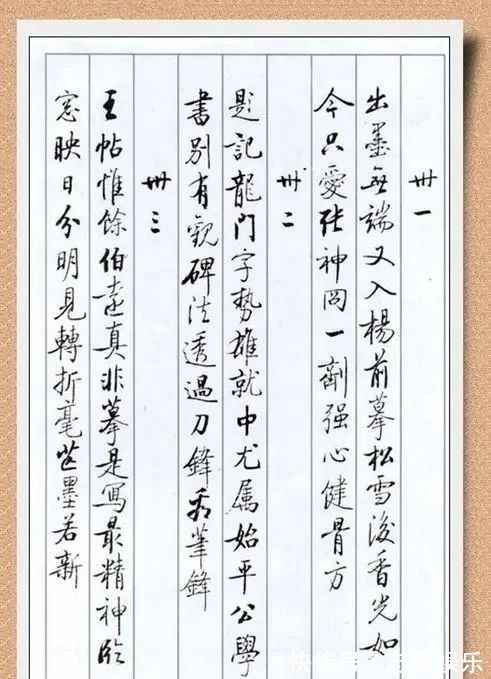 卅一
出墨無端又入楊前摹松雪後香光如
今只愛張神冏一劑强心健骨方
卅二
題記龍門字勢雄就中尤属始平公學
書别有觀碑法透過刀鋒看筆鋒
卅三
王帖惟餘伯遠真非摹是寫最精神臨
窓映日分明見轉折毫芒墨若新
快传号
娱乐